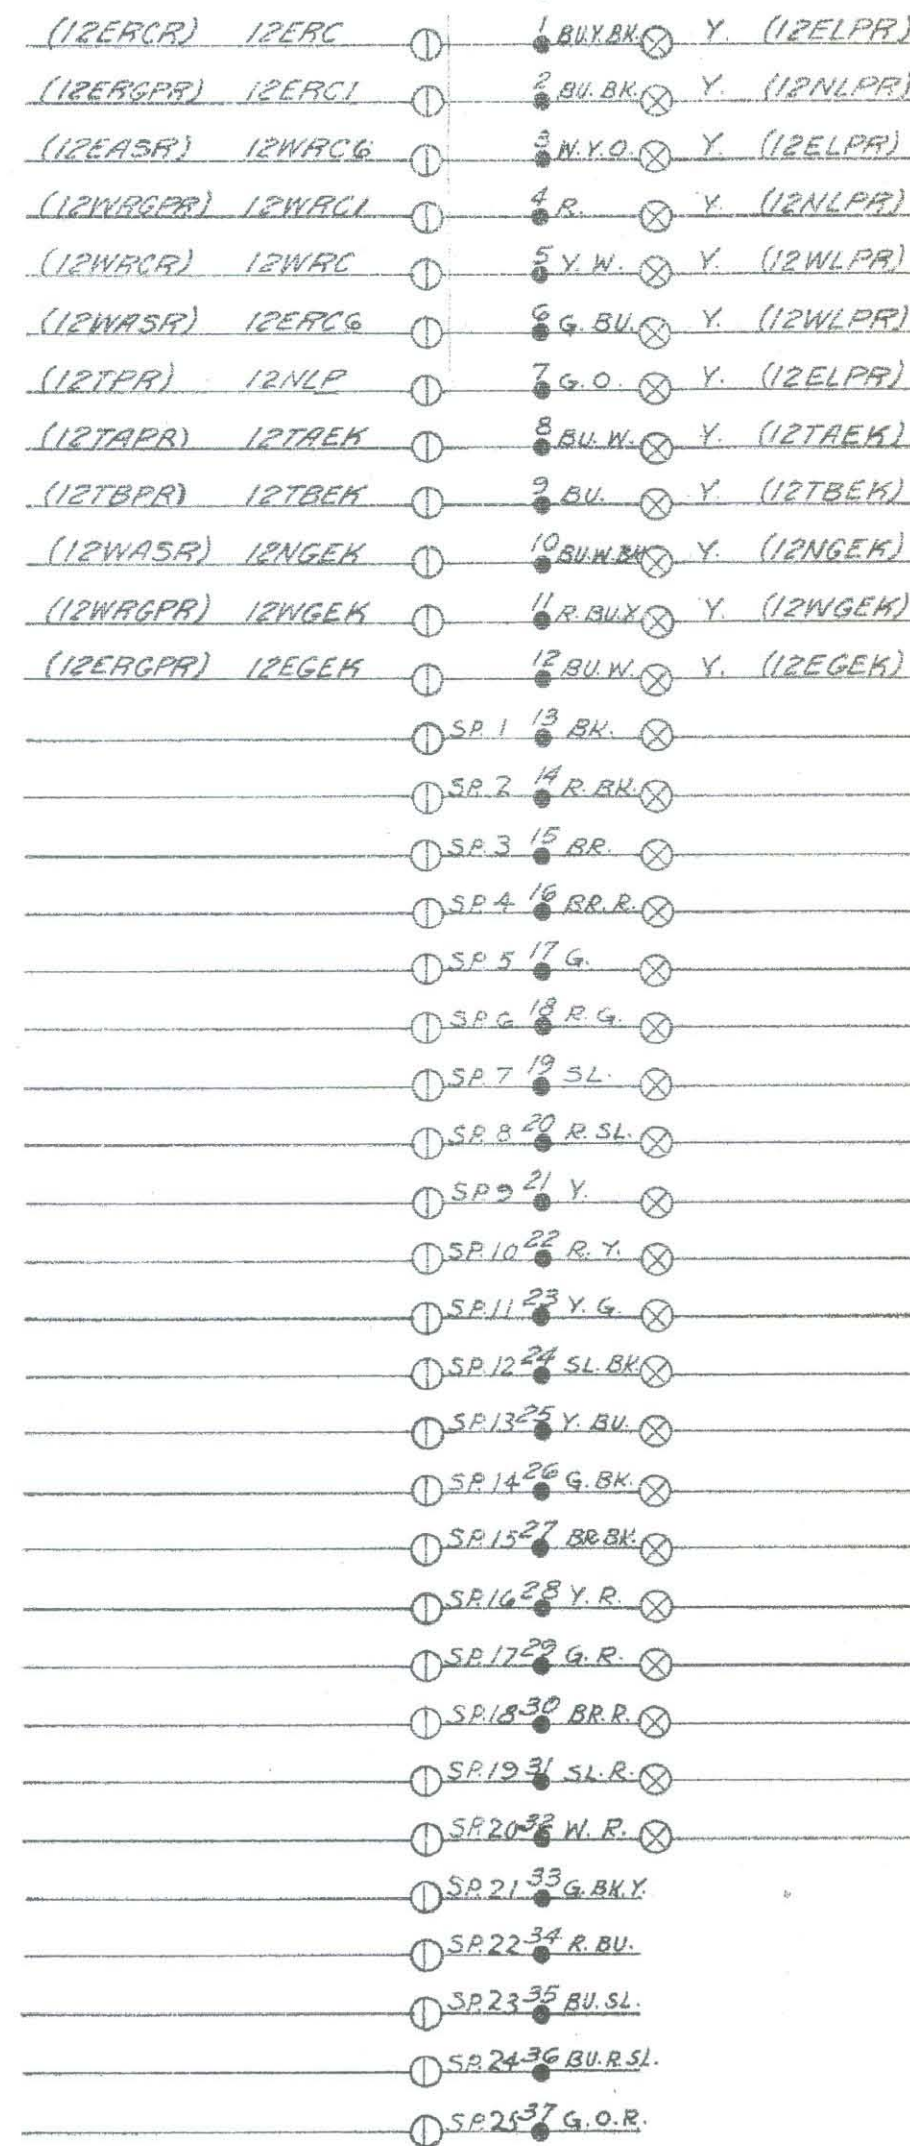 (12ERCR) 12ERC 1 BU.Y.BK. Y. (12ELPR)
(12ERGPR) 12ERC1 2 BU.BK. Y. (12NLPR)
(12EASR) 12WRC6 3 W.Y.O. Y. (12ELPR)
(12WRGPR) 12WRC1 4 R. Y. (12NLPR)
(12WRCR) 12WRC 5 Y.W. Y. (12WLPR)
(12WASR) 12ERC6 6 G.BU. Y. (12WLPR)
(12TPR) 12NLP 7 G.O. Y. (12ELPR)
(12TAPR) 12TAEK 8 BU.W. Y. (12TAEK)
(12TBPR) 12TBEK 9 BU. Y. (12TBEK)
(12WASR) 12NGEK 10 BU.W.BK Y. (12NGEK)
(12WRGPR) 12WGEK 11 R.BU.Y. Y. (12WGEK)
(12ERGPR) 12EGEK 12 BU.W. Y. (12EGEK)
SP. 1 13 BK.
SP. 2 14 R.BK.
SP. 3 15 BR.
SP. 4 16 BR.R.
SP. 5 17 G.
SP. 6 18 R.G.
SP. 7 19 SL.
SP. 8 20 R.SL.
SP. 9 21 Y.
SP. 10 22 R.Y.
SP. 11 23 Y.G.
SP. 12 24 SL.BK.
SP. 13 25 Y.BU.
SP. 14 26 G.BK.
SP. 15 27 BR.BK.
SP. 16 28 Y.R.
SP. 17 29 G.R.
SP. 18 30 BR.R.
SP. 19 31 SL.R.
SP. 20 32 W.R.
SP. 21 33 G.BK.Y.
SP. 22 34 R.BU.
SP. 23 35 BU.SL.
SP. 24 36 BU.R.SL.
SP. 25 37 G.O.R.